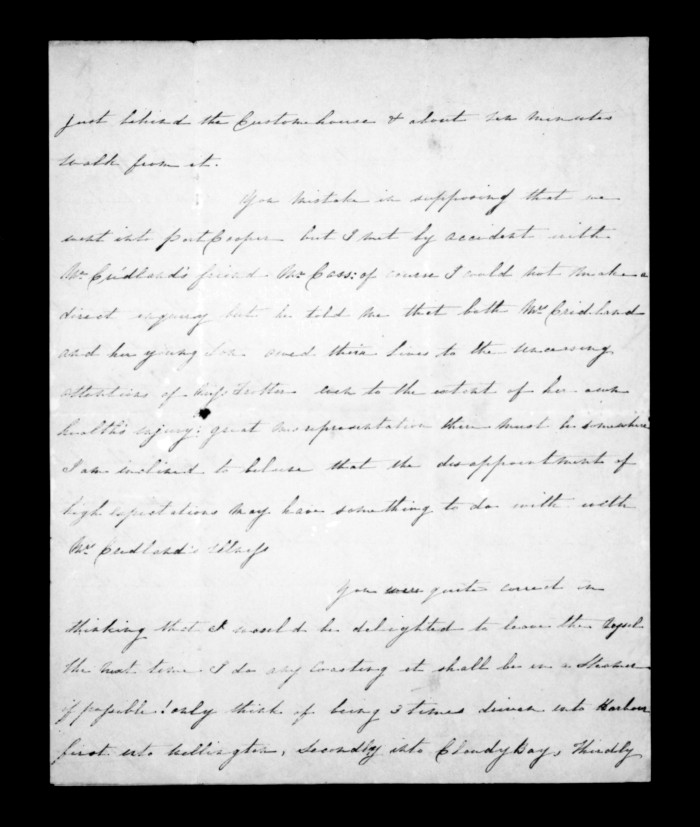 just behind the Customhouse & about ten minutes
walk from it.
You mistake in supposing that we
went into Port Cooper but I met by accident with
Mr Cridland's friend Mr Cass: of course I would not make a
direct enquiry but he told me that both Mrs Cridland
and her young Son owed their lives to the unceasing
attentions of Miss Trotter even to the extent of her own
health's injury: great misrepresentation there must be somewhere
I am inclined to beleive that the disappointment of
high expectations may have something to do with with
Mrs Cridland's illness
You were quite correct in
thinking that I would be delighted to leave the Vessel
the next time I do any coasting it shall be in a Steamer
if possible! only think of being 3 times driven into Harbour
first into Wellington, Secondly into Cloudy Bay, Thirdly